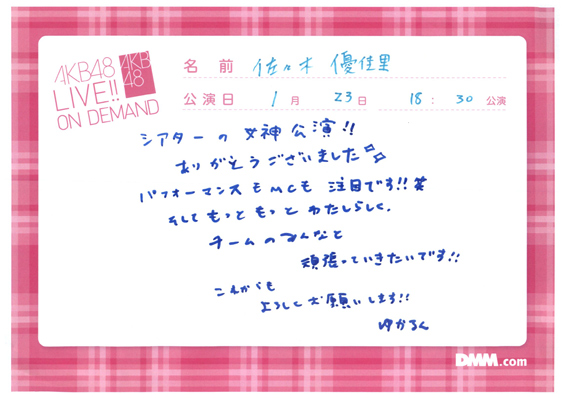 AKB48
LIVE!!
ON DEMAND
AKB
48
名前 佐々木 優佳里
公演日 1月 23日 18:30 公演
シアターの女神公演!!
ありがとうございました
パフォーマンスもMCも 注目です!! 笑
そしてもっともっと わたしらしく、
チームのみんなと
頑張っていきたいです!!
これからも
よろしくお願いします!!
ゆかるん
DMM.com